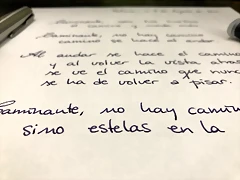 Caminante, no hay camino
camino se hace al andar
Al andar se hace el camino
y al volver la vista atrás
se ve el camino que nunca
se ha de volver a pisar.
Caminante, no hay camin
sino estelas en la